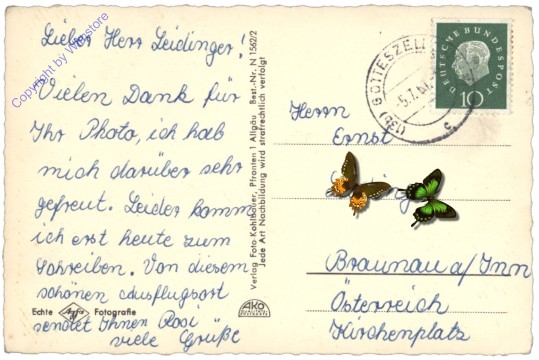 Lieber Herr Leidinger!
Vielen Dank für
Ihr Photo, ich hab
mich darüber sehr
gefreut. Leider komm
ich erst heute zum
Schreiben. Von diesem
schönen Ausflugsort
sendet Ihnen Rosi
viele Grüße
Echte Agfa Fotografie
Copyright by WPS-store
Verlag Foto Kohlbauer, Pfronten 1 Allgäu Best.-Nr. N 1562/2
Jede Art Nachbildung wird strafrechtlich verfolgt
AKO
(13b) GOTTESZELL
-5.7.
c
DEUTSCHE BUNDESPOST
10
Herrn
Ernst
Braunau a/Inn
Österreich
Kirchenplatz